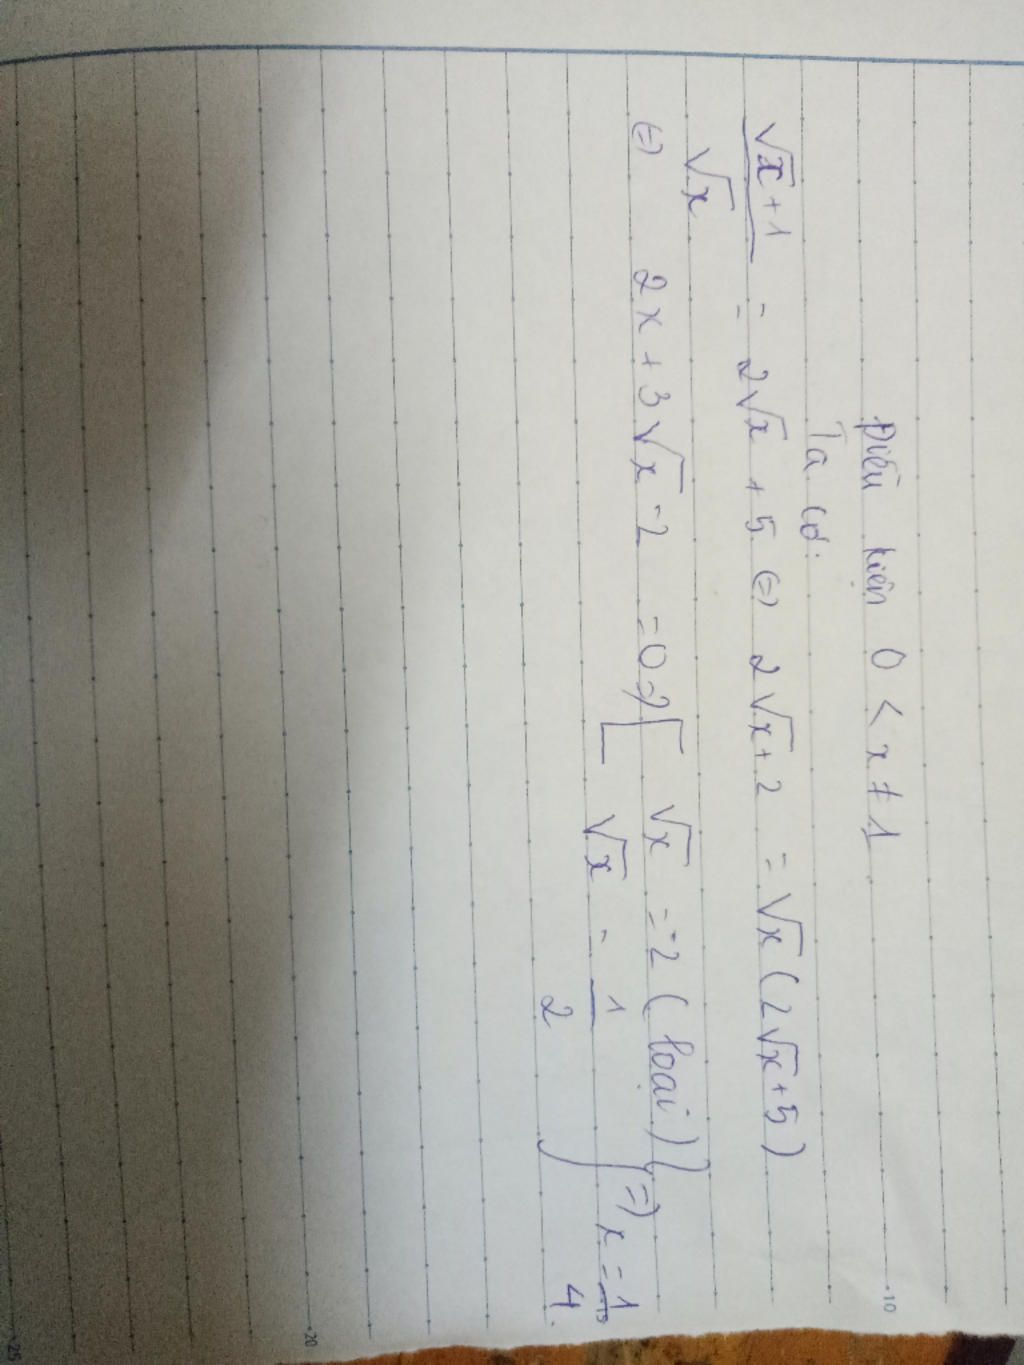 Điều kiện 0 < x ≠ 1
Ta có:
√x + 1 / √x = 2√x + 5 (=) 2√x + 2 = √x (2√x + 5)
(=) 2x + 3√x - 2 = 0 => [ √x = -2 (loại)
√x = 1/2 } => x = 1/4.
10
15
20
25